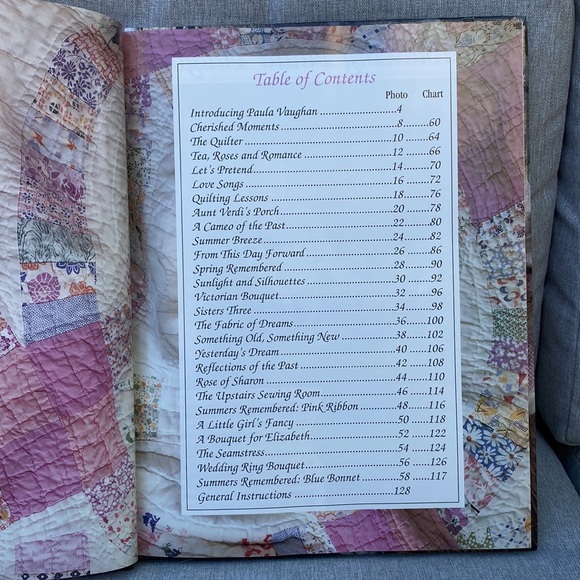 Table of Contents
Photo Chart
Introducing Paula Vaughan ..................4
Cherished Moments ..................8.........60
The Quilter ..................10.........64
Tea, Roses and Romance ..................12.........66
Let's Pretend ..................14.........70
Love Songs ..................16.........72
Quilting Lessons ..................18.........76
Aunt Verdi's Porch ..................20.........78
A Cameo of the Past ..................22.........80
Summer Breeze ..................24.........82
From This Day Forward ..................26.........86
Spring Remembered ..................28.........90
Sunlight and Silhouettes ..................30.........92
Victorian Bouquet ..................32.........96
Sisters Three ..................34.........98
The Fabric of Dreams ..................36.........100
Something Old, Something New ..................38.........102
Yesterday's Dream ..................40.........106
Reflections of the Past ..................42.........108
Rose of Sharon ..................44.........110
The Upstairs Sewing Room ..................46.........114
Summers Remembered: Pink Ribbon ..........48.........116
A Little Girl's Fancy ..................50.........118
A Bouquet for Elizabeth ..................52.........122
The Seamstress ..................54.........124
Wedding Ring Bouquet ..................56.........126
Summers Remembered: Blue Bonnet ..........58.........117
General Instructions ..................128